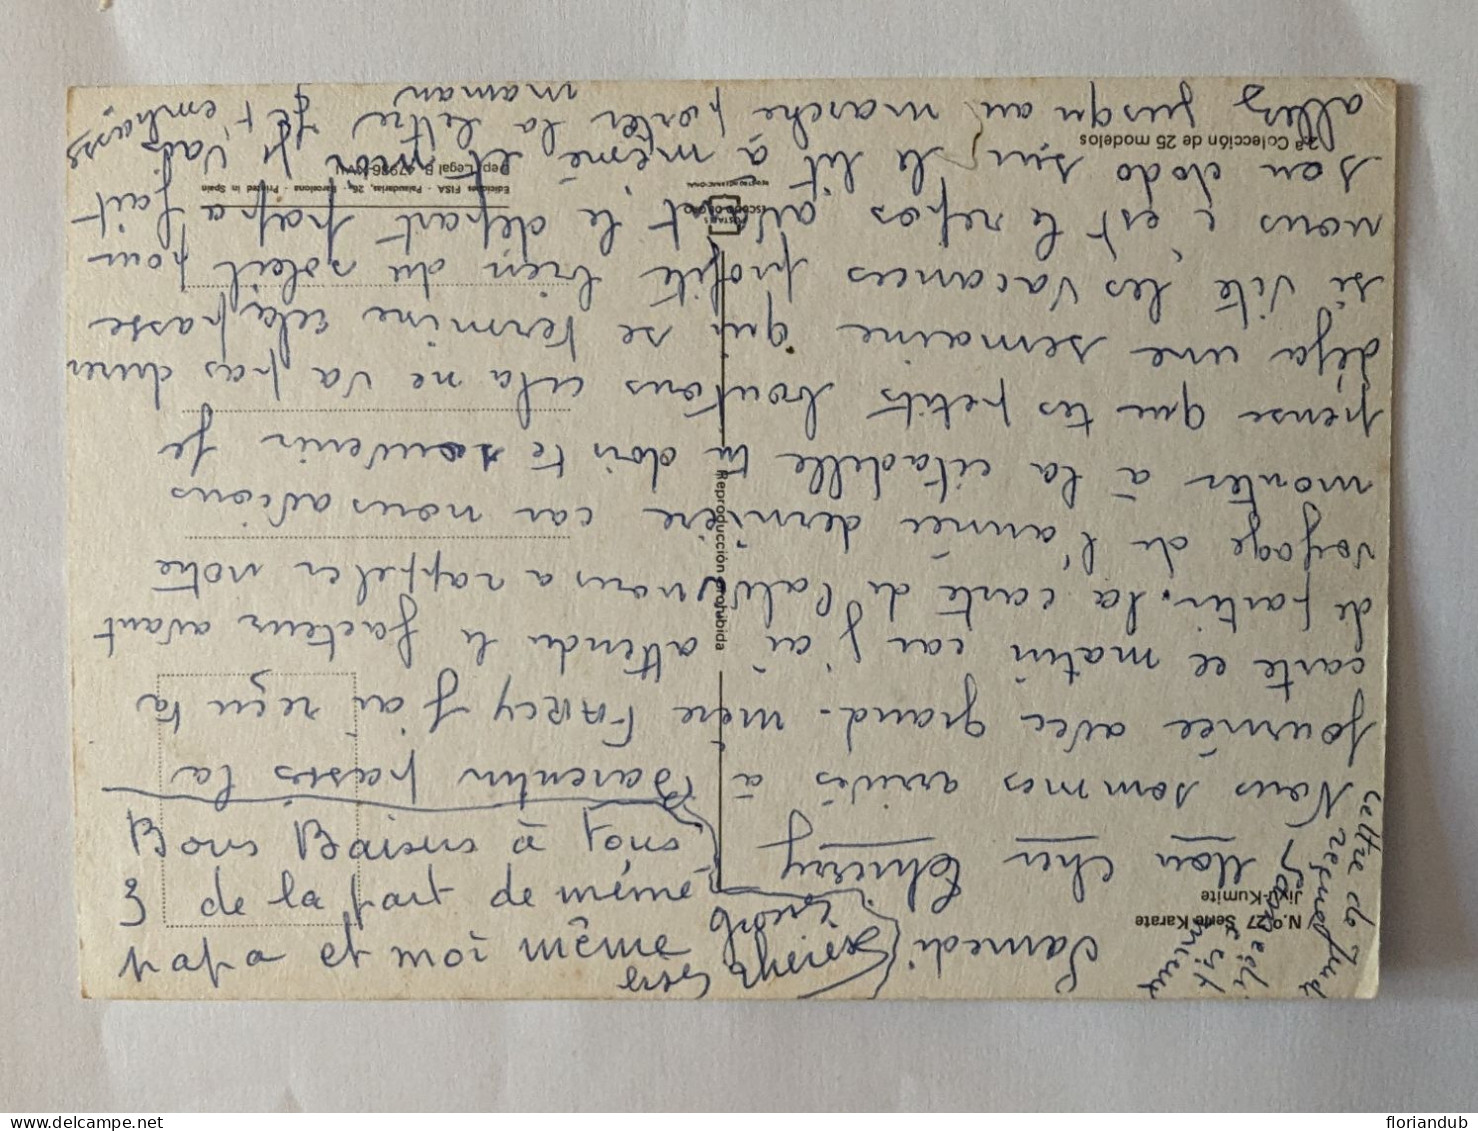 Samedi
Mon cher Thierry
Nous sommes arrivés à Barentin passés la
journée avec grand-mère FARCY j'ai reçu ta
carte ce matin car j'ai attendu le facteur avant
de partir. La carte de nous a rappeler notre
voyage de l'année dernière car nous avions
monter à la citadelle tu dois te souvenir je
pense que tes petits boutons cela ne va pas durer
déja une semaine qui se termine cela passe
si vite les vacances profite bien du soleil pour
nous c'est le repos avant le départ papa fait
son dodo sur le lit à mémé et moi je vais
allez jusqu'au marche porter la lettre je t'embrasse
maman
Bons Baisers à Tous
3 de la part de mémé
papa et moi même
grosses
lettre de Jud
reçue
Samedi
c'est
mieux
N.º 27 Serie Karate
Jiyu-Kumite
2.ª Colección de 25 modelos
Reproducción prohibida
POSTALES
ESCUDO DE ORO
Ediciones FISA - Palaudarias, 26 - Barcelona - Printed in Spain
Dep. Legal B.
floriandub